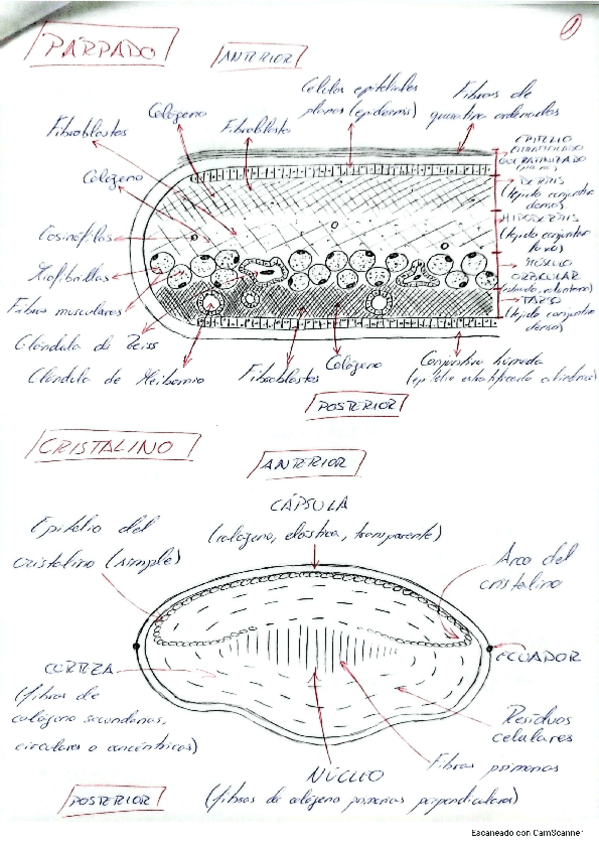 1
PÁRPADO
ANTERIOR
Células epiteliales
planas (epidermis)
Fibras de
queratina ordenadas
Colágeno
Fibroblastos
Fibroblasto
EPITELIO
ESTRATIFICADO
QUERATINIZADO
Colágeno
DERMIS
(tejido conjuntivo
denso)
HIPODERMIS
(tejido conjuntivo
laxo)
Eosinófilos
MÚSCULO
ORBICULAR
Miofibrillas
Fibras musculares
TARSO
(tejido conjuntivo
denso)
Glándula di Zeiss
Glándula de Meibomio
Fibroblastos
Colágeno
Conjuntiva húmeda
(epitelio estratificado cilíndrico)
POSTERIOR
CRISTALINO
ANTERIOR
CÁPSULA
(colágeno, elástica, transparente)
Epitelio del
cristalino (simple)
Arco del
cristalino
ECUADOR
CORTEZA
(fibras de
colágeno secundarias,
circulares o concéntricas)
Residuos
celulares
Fibras primarias
NÚCLEO
(fibras de colágeno primarias perpendiculares)
POSTERIOR
Escaneado con CamScanner